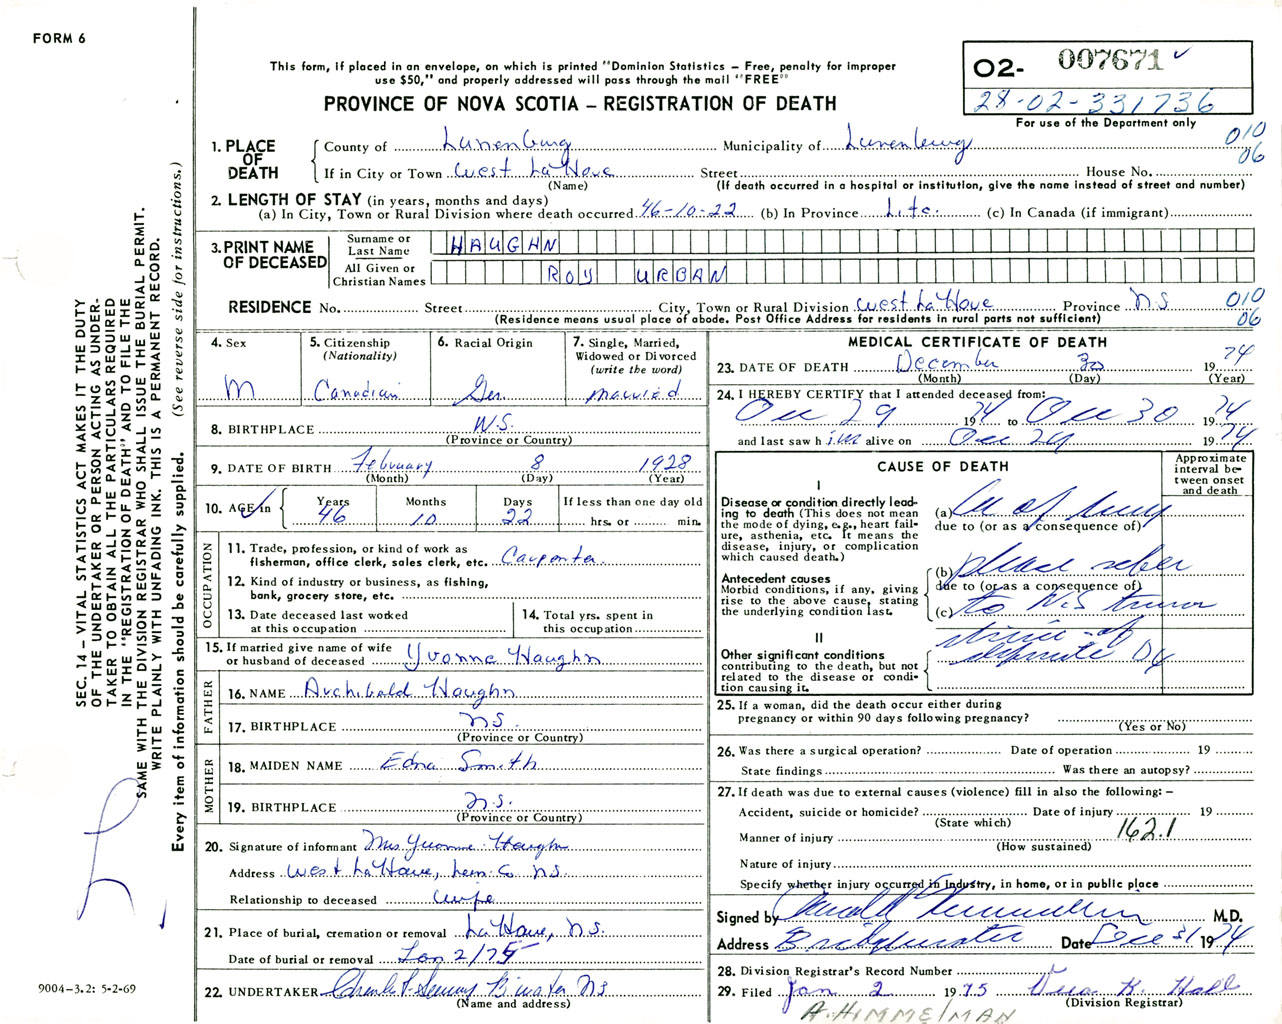 FORM 6
This form, if placed in an envelope, on which is printed "Dominion Statistics – Free, penalty for improper
use $50," and properly addressed will pass through the mail "FREE"
PROVINCE OF NOVA SCOTIA – REGISTRATION OF DEATH
02- 007671
28-02-331736
For use of the Department only
1. PLACE OF DEATH
County of Lunenburg Municipality of Lunenburg 010
If in City or Town West LaHave Street House No. 06
(Name) (If death occurred in a hospital or institution, give the name instead of street and number)
2. LENGTH OF STAY (in years, months and days)
(a) In City, Town or Rural Division where death occurred 46-10-22 (b) In Province Life (c) In Canada (if immigrant)
3. PRINT NAME OF DECEASED
Surname or Last Name HAUGHN
All Given or Christian Names ROY URBAN
RESIDENCE No. Street City, Town or Rural Division West LaHave Province NS 010
(Residence means usual place of abode. Post Office Address for residents in rural parts not sufficient) 06
4. Sex M
5. Citizenship (Nationality) Canadian
6. Racial Origin Ger.
7. Single, Married, Widowed or Divorced (write the word) married
8. BIRTHPLACE N.S.
(Province or Country)
9. DATE OF BIRTH February 8 1928
(Month) (Day) (Year)
10. AGE in Years 46 Months 10 Days 22 If less than one day old
hrs. or min.
OCCUPATION
11. Trade, profession, or kind of work as
fisherman, office clerk, sales clerk, etc. Carpenter
12. Kind of industry or business, as fishing,
bank, grocery store, etc.
13. Date deceased last worked
at this occupation
14. Total yrs. spent in
this occupation
15. If married give name of wife
or husband of deceased Yvonne Haughn
FATHER
16. NAME Archibald Haughn
17. BIRTHPLACE NS.
(Province or Country)
MOTHER
18. MAIDEN NAME Edna Smith
19. BIRTHPLACE N.S.
(Province or Country)
20. Signature of informant Mrs Yvonne Haughn
Address West LaHave, Lun. Co NS.
Relationship to deceased Wife
21. Place of burial, cremation or removal LaHave, N.S.
Date of burial or removal Jan 2/75
22. UNDERTAKER NS
(Name and address)
MEDICAL CERTIFICATE OF DEATH
23. DATE OF DEATH December 30 1974
(Month) (Day) (Year)
24. I HEREBY CERTIFY that I attended deceased from:
Dec 29 1974 to Dec 30 1974
and last saw him alive on Dec 29 1974
CAUSE OF DEATH
Approximate interval between onset and death
I
Disease or condition directly leading to death (This does not mean
the mode of dying, e.g., heart failure, asthenia, etc. It means the
disease, injury, or complication
which caused death.)
(a) Ca of lung
due to (or as a consequence of)
Antecedent causes
Morbid conditions, if any, giving
rise to the above cause, stating
the underlying condition last.
(b) please refer
due to (or as a consequence of)
(c) to N.S tumor
II
Other significant conditions
contributing to the death, but not
related to the disease or condition causing it.
25. If a woman, did the death occur either during
pregnancy or within 90 days following pregnancy?
(Yes or No)
26. Was there a surgical operation? Date of operation 19
State findings Was there an autopsy?
27. If death was due to external causes (violence) fill in also the following: –
Accident, suicide or homicide? Date of injury 19
(State which)
Manner of injury 162.1
(How sustained)
Nature of injury
Specify whether injury occurred in industry, in home, or in public place
Signed by M.D.
Address Bridgewater Date Dec 31 1974
28. Division Registrar's Record Number
29. Filed Jan 2 1975 Vera K. Hall
(Division Registrar)
A. HIMMELMAN
SEC. 14 – VITAL STATISTICS ACT MAKES IT THE DUTY
OF THE UNDERTAKER OR PERSON ACTING AS UNDERTAKER TO OBTAIN ALL THE PARTICULARS REQUIRED
IN THE "REGISTRATION OF DEATH" AND TO FILE THE
SAME WITH THE DIVISION REGISTRAR WHO SHALL ISSUE THE BURIAL PERMIT.
WRITE PLAINLY WITH UNFADING INK. THIS IS A PERMANENT RECORD.
Every item of information should be carefully supplied. (See reverse side for instructions.)
9004-3.2: 5-2-69